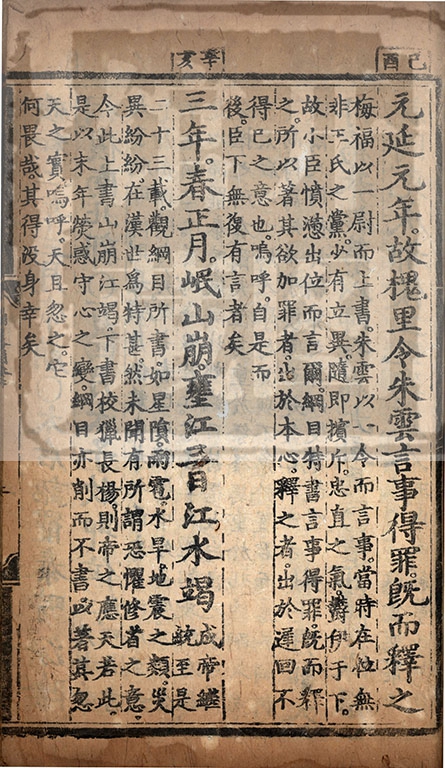 己酉
元延元年。故槐里令朱雲言事得罪。既而釋之
梅福以一尉而上書。朱雲以一令而言事。當時在位無
非王氏之黨。少有立異。隨即擯斥。忠直之氣。欝伊于下。
故小臣憤懣出位而言爾。綱目特書言事得罪。既而釋
之。所以著其欲加罪者。出於本心。釋之者。出於遲回不
得已之意也。嗚呼。自是而
後。臣下無復有言者矣
辛亥
三年。春正月。岷山崩。壅江三日江水竭
成帝継
統至是
二十三載。觀綱目所書。如星隕。雨雹水旱。地震之類。災
異紛紛。在漢世爲特甚。然未聞有所謂恐懼修省之意。
今此上書山崩江竭。下書校獵長楊。則帝之應天若此。
是以末年熒惑守心之變。綱目亦削而不書。以著其忽
天之實。嗚呼。天且忽之。它
何畏哉。其得没身幸矣